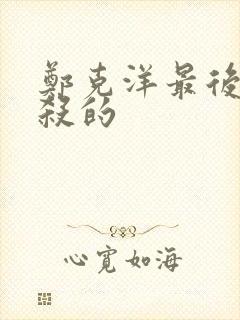 鄭克洋最後
殺的
心寬如海